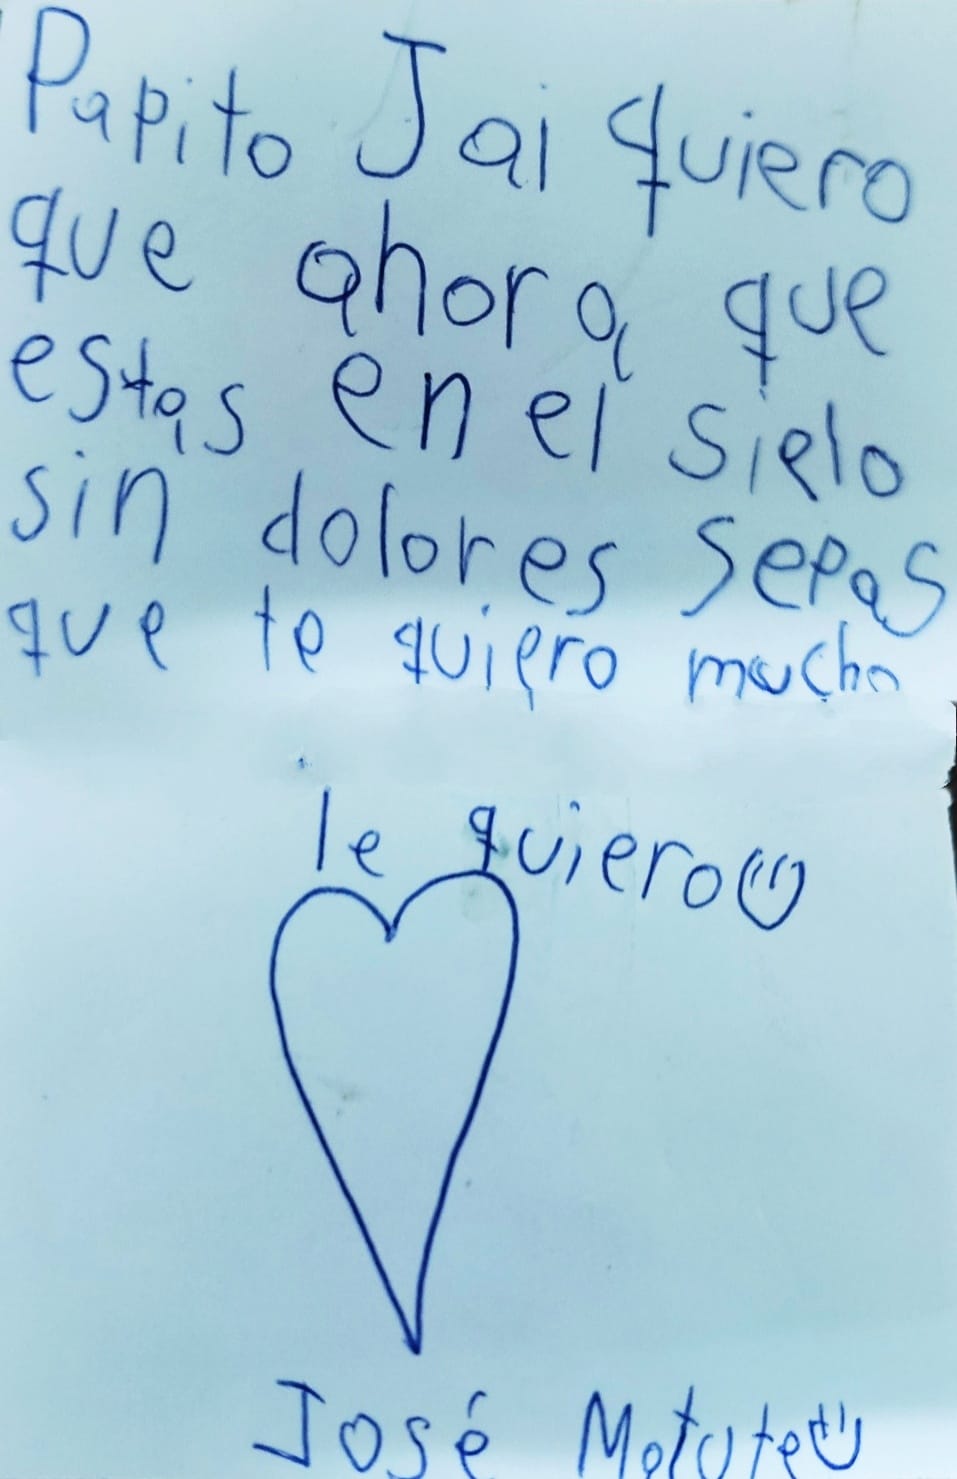 Papito Jai quiero
que ahora que
estas en el sielo
sin dolores sepas
que te quiero mucho
le quiero
José Matute